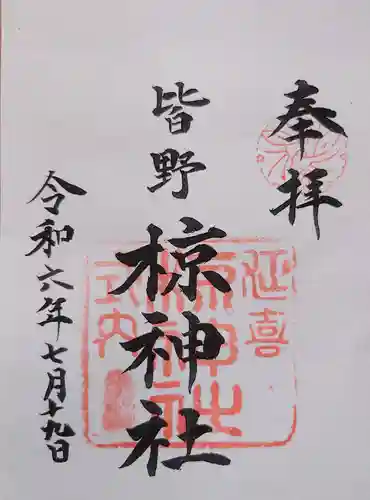 奉拝
皆野
椋神社
令和六年七月十九日
延喜
式内
椋神社